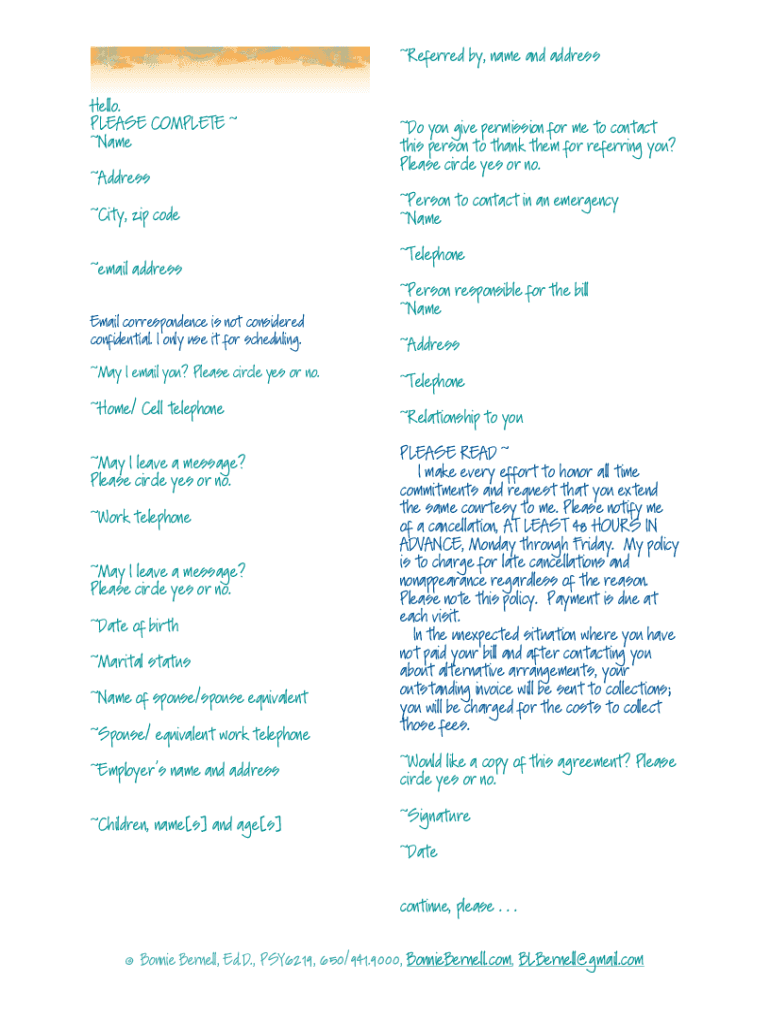 Hello.
PLEASE COMPLETE ~
~Name
~Address
~City, zip code
~email address
Email correspondence is not considered
confidential. I only use it for scheduling.
~May I email you? Please circle yes or no.
~Home/ Cell telephone
~May I leave a message?
Please circle yes or no.
~Work telephone
~May I leave a message?
Please circle yes or no.
~Date of birth
~Marital status
~Name of spouse/spouse equivalent
~Spouse/ equivalent work telephone
~Employer's name and address
~Children, name[s] and age[s]
~Referred by, name and address
~Do you give permission for me to contact
this person to thank them for referring you?
Please circle yes or no.
~Person to contact in an emergency
~Name
~Telephone
~Person responsible for the bill
~Name
~Address
~Telephone
~Relationship to you
PLEASE READ ~
I make every effort to honor all time
commitments and request that you extend
the same courtesy to me. Please notify me
of a cancellation, AT LEAST 48 HOURS IN
ADVANCE, Monday through Friday. My policy
is to charge for late cancellations and
nonappearance regardless of the reason.
Please note this policy. Payment is due at
each visit.
In the unexpected situation where you have
not paid your bill and after contacting you
about alternative arrangements, your
outstanding invoice will be sent to collections;
you will be charged for the costs to collect
those fees.
~Would like a copy of this agreement? Please
circle yes or no.
~Signature
~Date
continue, please . . .
@ Bonnie Bernell, Ed.D., PSY6219, 650/941.9000, BonnieBernell.com, BLBernell@gmail.com